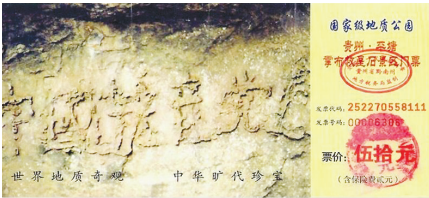 世界地质奇观 中华旷代珍宝
国家级地质公园
贵州·平塘
掌布救星石景区门票
贵州省黔南州
发票代码: 252270558111
发票号码: 00006308
票价: 伍拾元
(含保险费贰元)